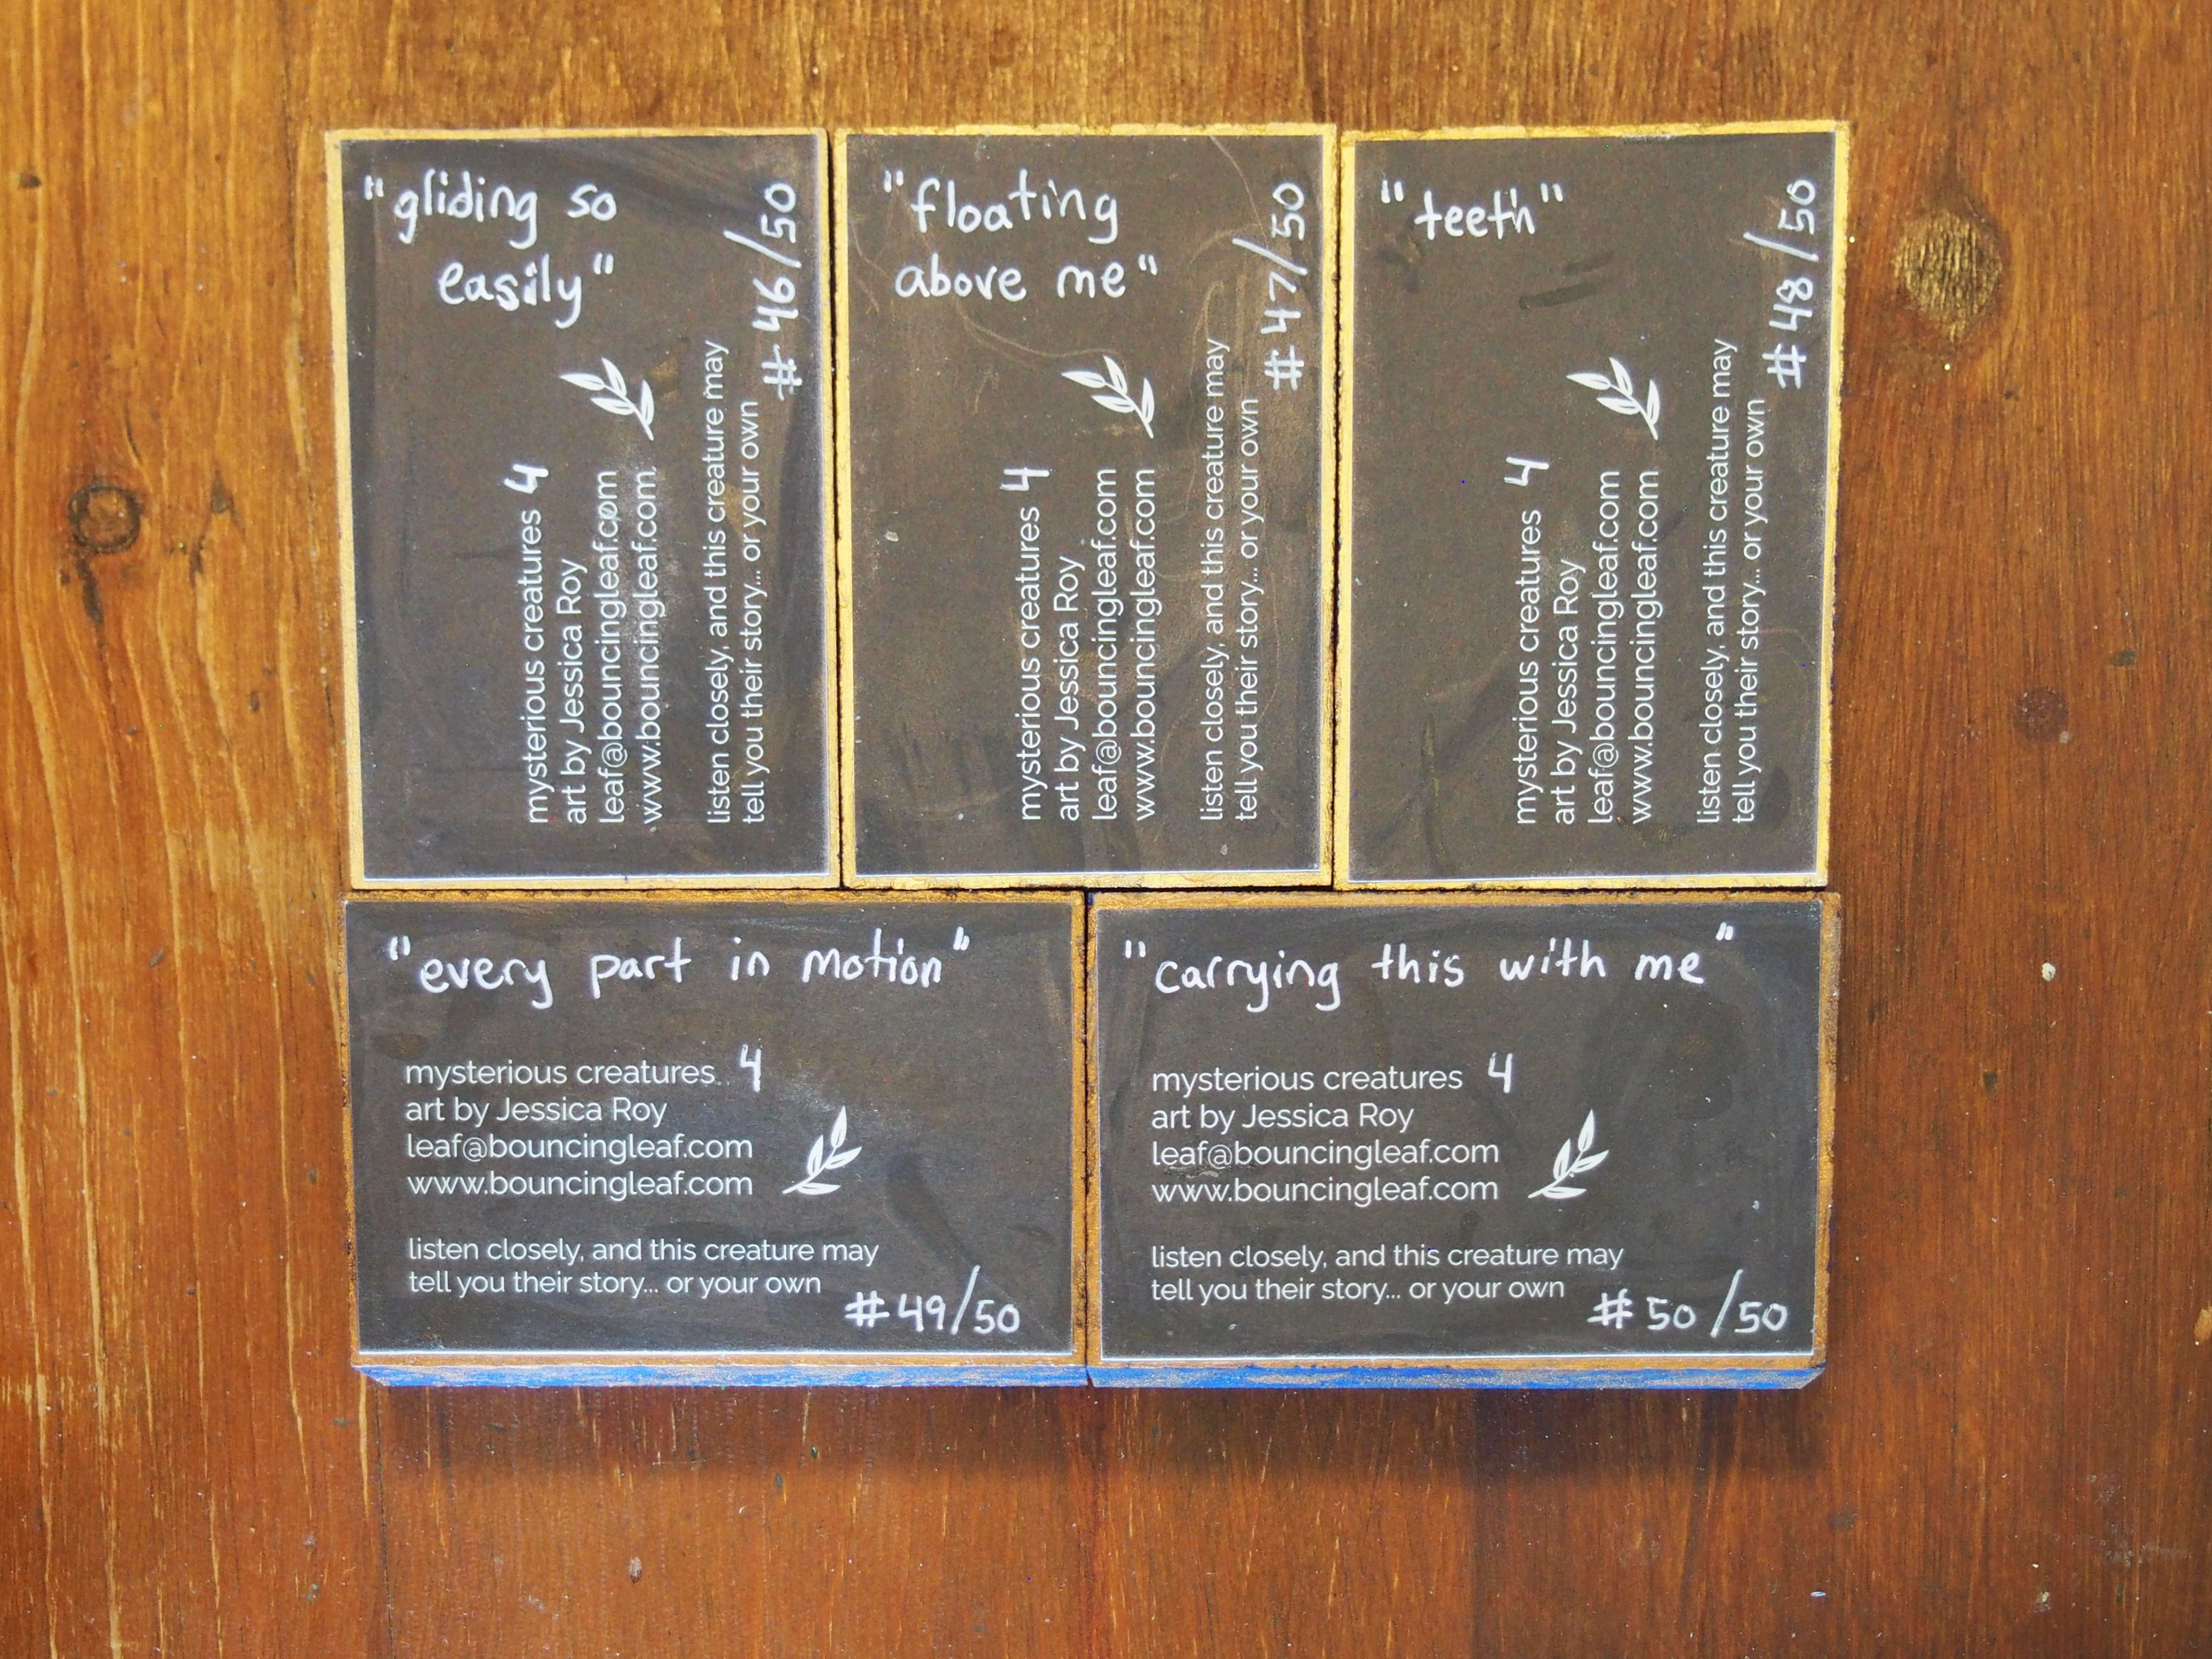 "gliding so
easily"
mysterious creatures 4
art by Jessica Roy
leaf@bouncingleaf.com
www.bouncingleaf.com
listen closely, and this creature may
tell you their story... or your own
#46/50
"floating
above me"
mysterious creatures 4
art by Jessica Roy
leaf@bouncingleaf.com
www.bouncingleaf.com
listen closely, and this creature may
tell you their story... or your own
#47/50
"teeth"
mysterious creatures 4
art by Jessica Roy
leaf@bouncingleaf.com
www.bouncingleaf.com
listen closely, and this creature may
tell you their story... or your own
#48/50
"every part in motion"
mysterious creatures 4
art by Jessica Roy
leaf@bouncingleaf.com
www.bouncingleaf.com
listen closely, and this creature may
tell you their story... or your own
#49/50
"carrying this with me"
mysterious creatures 4
art by Jessica Roy
leaf@bouncingleaf.com
www.bouncingleaf.com
listen closely, and this creature may
tell you their story... or your own
#50/50